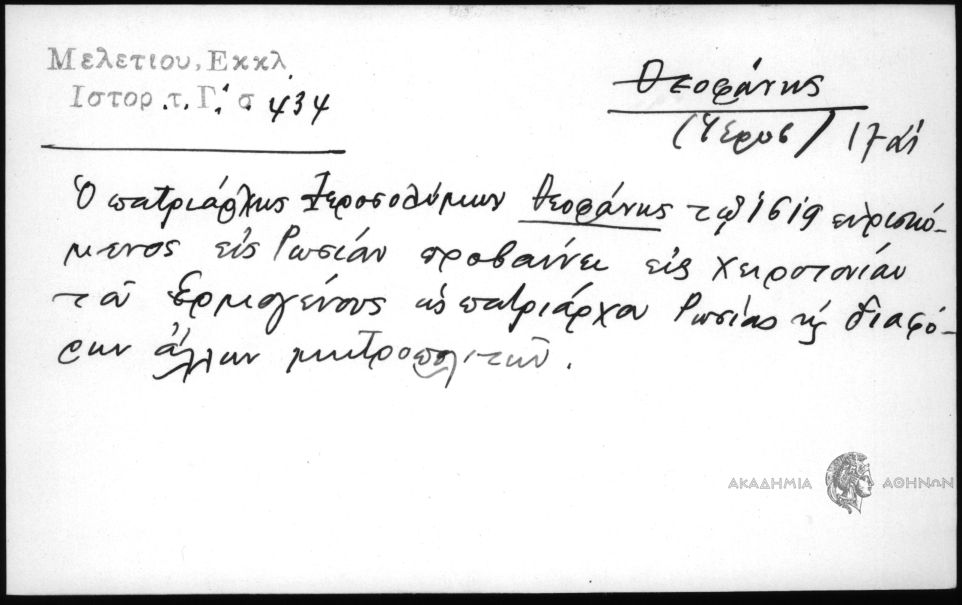 Μελετιου, Εκκλ.
Ιστορ. τ. Γ΄. σ. 434
Θεοφάνης
(Ἱεροσ) 17 αἰ
Ὁ πατριάρχης Ἱεροσολύμων Θεοφάνης τῷ 1619 εὑρισκό-
μενος εἰς Ρωσίαν προβαίνει εἰς χειροτονίαν
τοῦ Ερμογένους ὡς πατριάρχου Ρωσίας κ διαφό-
ρων ἄλλων μητροπολιτῶν.
ΑΚΑΔΗΜΙΑ ΑΘΗΝΩΝ